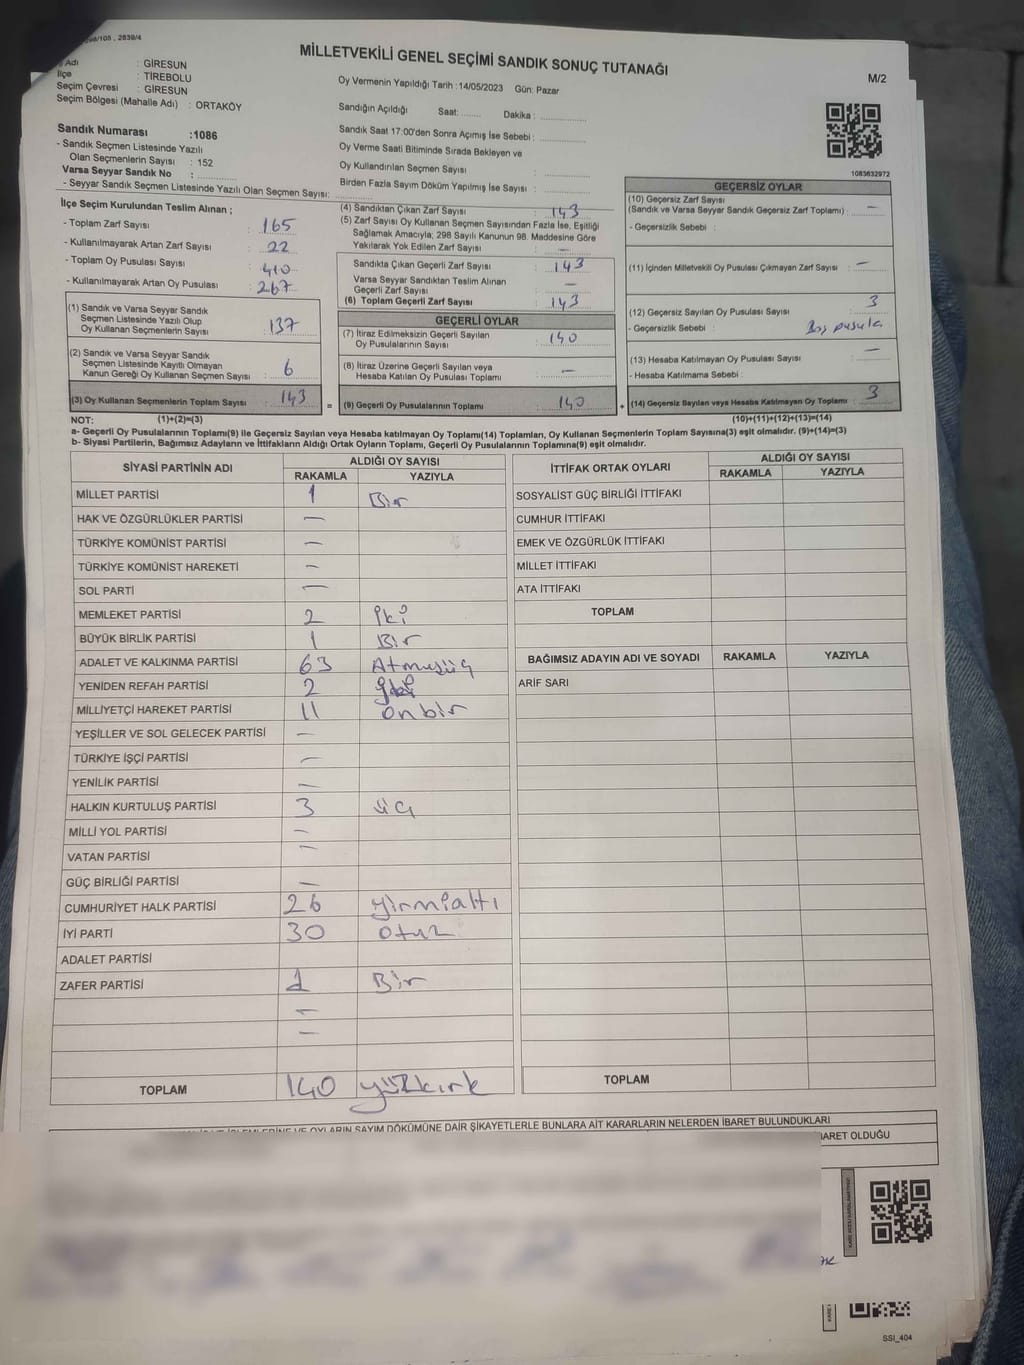 MİLLETVEKİLİ GENEL SEÇİMİ SANDIK SONUÇ TUTANAĞI
M/2
Adı : GİRESUN
İlçe : TİREBOLU
Seçim Çevresi : GİRESUN
Seçim Bölgesi (Mahalle Adı) : ORTAKÖY
Oy Vermenin Yapıldığı Tarih : 14/05/2023 Gün: Pazar
Sandığın Açıldığı Saat: ........ Dakika : ..............
Sandık Saat 17:00'den Sonra Açımış İse Sebebi : ..............
Oy Verme Saati Bitiminde Sırada Bekleyen ve
Oy Kullandırılan Seçmen Sayısı : ..............
Birden Fazla Sayım Döküm Yapılmış İse Sayısı : ..............
Sandık Numarası :1086
- Sandık Seçmen Listesinde Yazılı
Olan Seçmenlerin Sayısı : 152
Varsa Seyyar Sandık No : ..............
- Seyyar Sandık Seçmen Listesinde Yazılı Olan Seçmen Sayısı: ..............
1083632972
İlçe Seçim Kurulundan Teslim Alınan ;
- Toplam Zarf Sayısı : 165
- Kullanılmayarak Artan Zarf Sayısı : 22
- Toplam Oy Pusulası Sayısı : 410
- Kullanılmayarak Artan Oy Pusulası : 267
(1) Sandık ve Varsa Seyyar Sandık
Seçmen Listesinde Yazılı Olup
Oy Kullanan Seçmenlerin Sayısı : 137
(2) Sandık ve Varsa Seyyar Sandık
Seçmen Listesinde Kayıtlı Olmayan
Kanun Gereği Oy Kullanan Seçmen Sayısı : 6
(3) Oy Kullanan Seçmenlerin Toplam Sayısı : 143
(4) Sandıktan Çıkan Zarf Sayısı : 143
(5) Zarf Sayısı Oy Kullanan Seçmen Sayısından Fazla İse, Eşitliği
Sağlamak Amacıyla; 298 Sayılı Kanunun 98. Maddesine Göre
Yakılarak Yok Edilen Zarf Sayısı : —
Sandıkta Çıkan Geçerli Zarf Sayısı : 143
Varsa Seyyar Sandıktan Teslim Alınan
Geçerli Zarf Sayısı : —
(6) Toplam Geçerli Zarf Sayısı : 143
GEÇERLİ OYLAR
(7) İtiraz Edilmeksizin Geçerli Sayılan
Oy Pusulalarının Sayısı : 140
(8) İtiraz Üzerine Geçerli Sayılan veya
Hesaba Katılan Oy Pusulası Toplamı : —
= (9) Geçerli Oy Pusulalarının Toplamı : 140 +
GEÇERSİZ OYLAR
(10) Geçersiz Zarf Sayısı
(Sandık ve Varsa Seyyar Sandık Geçersiz Zarf Toplamı) : —
- Geçersizlik Sebebi :
(11) İçinden Milletvekili Oy Pusulası Çıkmayan Zarf Sayısı : —
(12) Geçersiz Sayılan Oy Pusulası Sayısı : 3
- Geçersizlik Sebebi : Boş pusula
(13) Hesaba Katılmayan Oy Pusulası Sayısı : —
- Hesaba Katılmama Sebebi :
(14) Geçersiz Sayılan veya Hesaba Katılmayan Oy Toplamı : 3
NOT: (1)+(2)=(3) (10)+(11)+(12)+(13)=(14)
a- Geçerli Oy Pusulalarının Toplamı(9) ile Geçersiz Sayılan veya Hesaba katılmayan Oy Toplamı(14) Toplamları, Oy Kullanan Seçmenlerin Toplam Sayısına(3) eşit olmalıdır. (9)+(14)=(3)
b- Siyasi Partilerin, Bağımsız Adayların ve İttifakların Aldığı Ortak Oyların Toplamı, Geçerli Oy Pusulalarının Toplamına(9) eşit olmalıdır.
SİYASİ PARTİNİN ADI ALDIĞI OY SAYISI
RAKAMLA YAZIYLA
MİLLET PARTİSİ 1 Bir
HAK VE ÖZGÜRLÜKLER PARTİSİ —
TÜRKİYE KOMÜNİST PARTİSİ —
TÜRKİYE KOMÜNİST HAREKETİ —
SOL PARTİ —
MEMLEKET PARTİSİ 2 İki
BÜYÜK BİRLİK PARTİSİ 1 Bir
ADALET VE KALKINMA PARTİSİ 63 Atmışüç
YENİDEN REFAH PARTİSİ 2
MİLLİYETÇİ HAREKET PARTİSİ 11 onbir
YEŞİLLER VE SOL GELECEK PARTİSİ —
TÜRKİYE İŞÇİ PARTİSİ —
YENİLİK PARTİSİ —
HALKIN KURTULUŞ PARTİSİ 3 üç
MİLLİ YOL PARTİSİ —
VATAN PARTİSİ —
GÜÇ BİRLİĞİ PARTİSİ —
CUMHURİYET HALK PARTİSİ 26 yirmialtı
İYİ PARTİ 30 otuz
ADALET PARTİSİ
ZAFER PARTİSİ 1 Bir
—
—
TOPLAM 140 yüzkırk
İTTİFAK ORTAK OYLARI ALDIĞI OY SAYISI
RAKAMLA YAZIYLA
SOSYALİST GÜÇ BİRLİĞİ İTTİFAKI
CUMHUR İTTİFAKI
EMEK VE ÖZGÜRLÜK İTTİFAKI
MİLLET İTTİFAKI
ATA İTTİFAKI
TOPLAM
BAĞIMSIZ ADAYIN ADI VE SOYADI RAKAMLA YAZIYLA
ARİF SARI
TOPLAM
OYLARIN SAYIM DÖKÜMÜNE DAİR ŞİKAYETLERLE BUNLARA AİT KARARLARIN NELERDEN İBARET BULUNDUKLARI
OLDUĞU
SSI_404